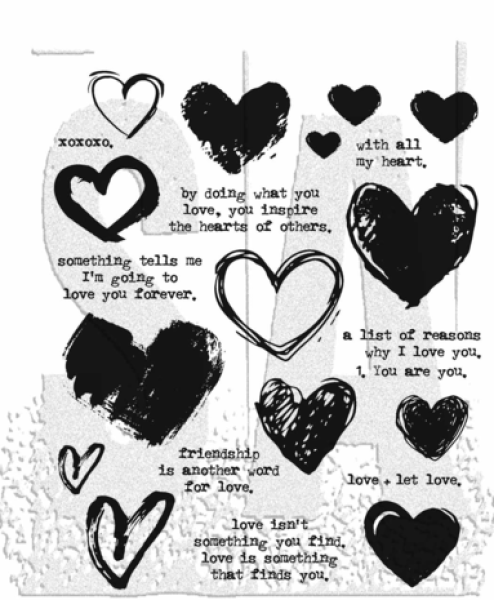 xoxoxo.
with all
my heart.
by doing what you
love, you inspire
the hearts of others.
something tells me
I'm going to
love you forever.
a list of reasons
why I love you.
1. You are you.
friendship
is another word
for love.
love + let love.
love isn't
something you find.
love is something
that finds you.